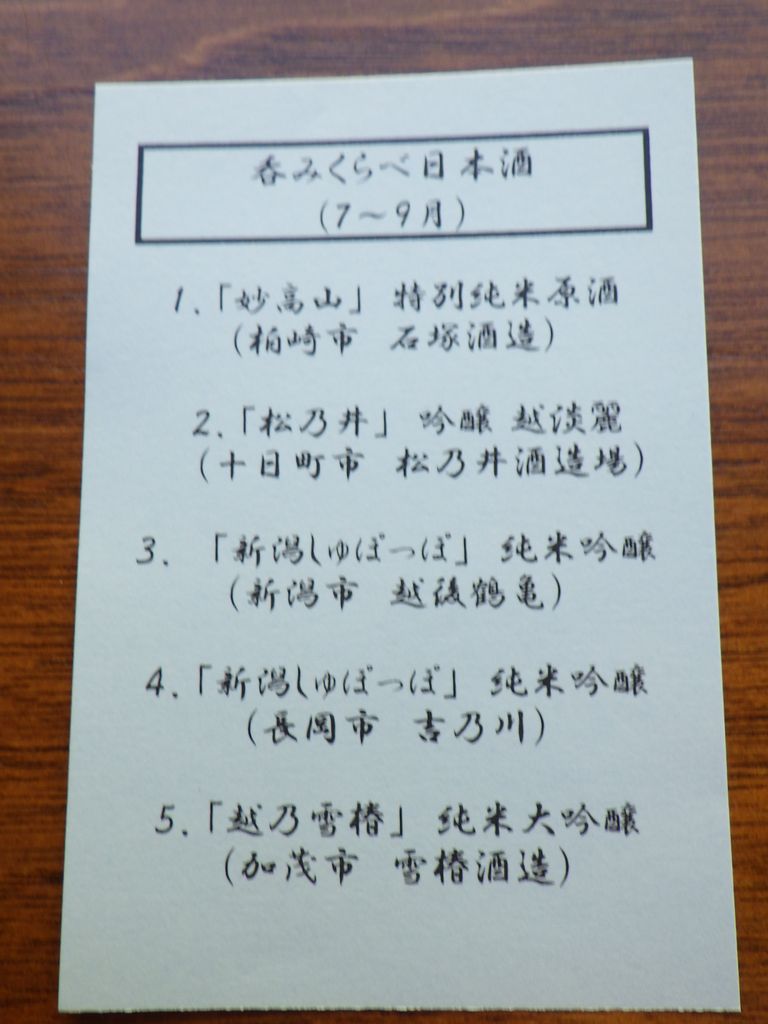 呑みくらべ日本酒
(7～9月)
1、「妙高山」 特別純米原酒
(柏崎市 石塚酒造)
2、「松乃井」 吟醸 越淡麗
(十日町市 松乃井酒造場)
3、「新潟しゅぽっぽ」 純米吟醸
(新潟市 越後鶴亀)
4、「新潟しゅぽっぽ」 純米吟醸
(長岡市 吉乃川)
5、「越乃雪椿」 純米大吟醸
(加茂市 雪椿酒造)